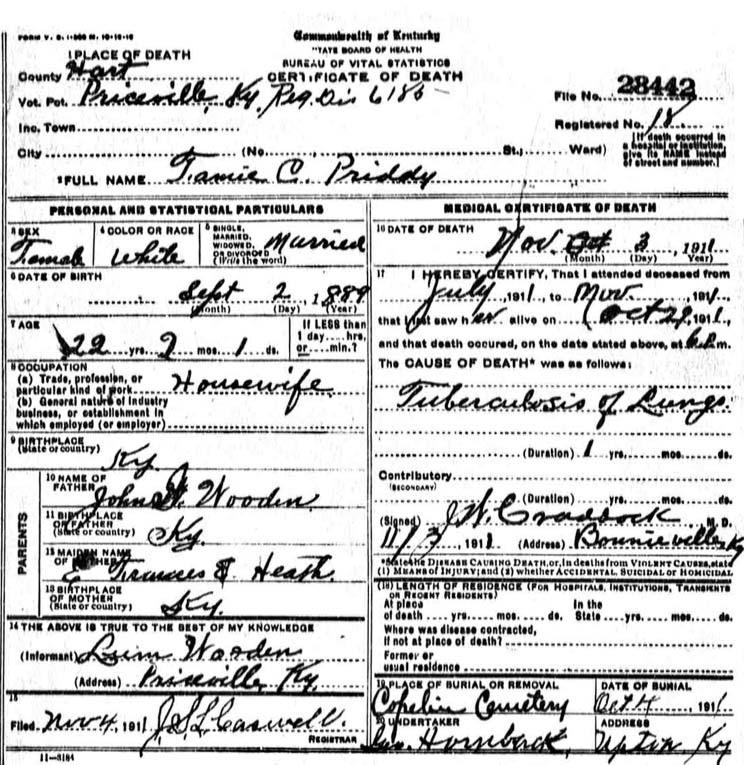 FORM V. S. 1-
Commonwealth of Kentucky
TATE BOARD OF HEALTH
BUREAU OF VITAL STATISTICS
CERTIFICATE OF DEATH
1 PLACE OF DEATH
County Hart
Vot. Pct. Priceville, Ky. Reg. Dis 6185
File No. 28442
Inc. Town
Registered No. 18
City (No. , St.; Ward)
[If death occurred in a hospital or institution, give its NAME instead of street and number.]
2 FULL NAME Famie C. Priddy
PERSONAL AND STATISTICAL PARTICULARS
3 SEX Female
4 COLOR OR RACE White
5 SINGLE, MARRIED, WIDOWED, OR DIVORCED (Write the word) Married
6 DATE OF BIRTH
Sept 2, 1889
(Month) (Day) (Year)
7 AGE
22 yrs. 2 mos. 1 ds.
If LESS than 1 day....hrs. or....min.?
8 OCCUPATION
(a) Trade, profession, or particular kind of work Housewife
(b) General nature of industry business, or establishment in which employed (or employer)
9 BIRTHPLACE
(State or country) Ky.
PARENTS
10 NAME OF FATHER John Wooden
11 BIRTHPLACE OF FATHER
(State or country) Ky.
12 MAIDEN NAME OF MOTHER Frances Heath
13 BIRTHPLACE OF MOTHER
(State or country) Ky
14 THE ABOVE IS TRUE TO THE BEST OF MY KNOWLEDGE
(Informant) Wooden
(Address) Priceville, Ky.
15
Filed Nov 4, 1911 Caswell.
REGISTRAR
11-3184
MEDICAL CERTIFICATE OF DEATH
16 DATE OF DEATH
Nov. Oct 3, 1911
(Month) (Day) (Year)
17 I HEREBY CERTIFY, That I attended deceased from
July, 1911, to Nov., 191
that I last saw her alive on Oct 29, 1911,
and that death occured, on the date stated above, at m.
The CAUSE OF DEATH* was as follows:
Tuberculosis of Lungs.
(Duration) 1 yrs. mos. ds.
Contributory
(SECONDARY)
(Duration) yrs. mos. ds.
(Signed) J.W. Craddock M. D.
11/3, 1911 (Address) Bonnieville, Ky
*State the DISEASE CAUSING DEATH, or, in deaths from VIOLENT CAUSES, state
(1) MEANS OF INJURY; and (2) whether ACCIDENTAL SUICIDAL or HOMICIDAL
(18) LENGTH OF RESIDENCE (FOR HOSPITALS, INSTITUTIONS, TRANSIENTS OR RECENT RESIDENTS)
At place of death yrs. mos. ds.
In the State yrs. mos. ds.
Where was disease contracted,
if not at place of death?
Former or
usual residence
19 PLACE OF BURIAL OR REMOVAL
Copelin Cemetery
DATE OF BURIAL
Oct 4, 191
20 UNDERTAKER
Hornback,
ADDRESS
Upton Ky